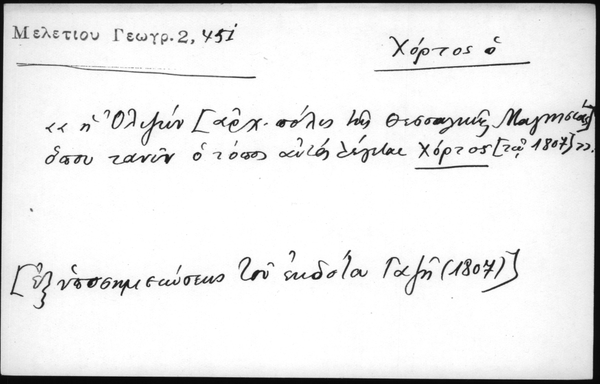 Μελετίου Γεωγρ. 2, 451
Χόρτος ὁ
«ἡ Ὀλιζών [ἀρχ. πόλις τῆς Θεσσαλικῆς Μαγνησίας]
ὅπου τανῦν ὁ τόπος αὐτὸς λέγεται Χόρτος [τῷ 1807]».
[ἐξ ὑποσημειώσεως τοῦ ἐκδότου Γαζῆ (1807)]